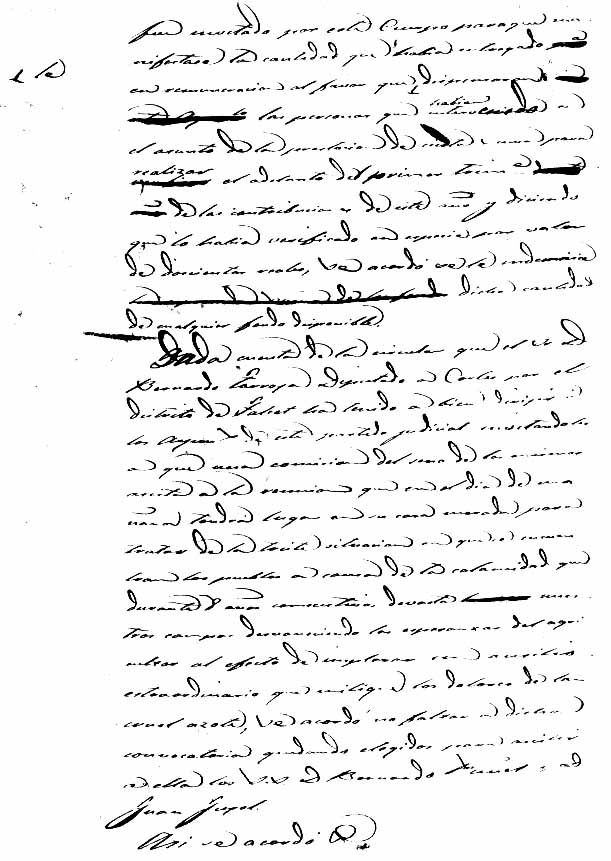 fue invitado por este Cuerpo para que ma-
nifestase la cantidad que habia entregado
en remuneracion al favor que dispensaron
las personas que habian intervenido en
el asunto de la de para
realizar el adelanto del primer
de las contribuciones de este año y diciendo
que lo habia verificado en especie por valor
de doscientos reales, se acordó se le indemnice
dicha cantidad
de cualquier fondo disponible.
Dada cuenta de la circular que el Sr. D.
Bernardo diputado a Cortes por el
distrito de Falset ha tenido a bien dirigir a
los Ayun.s de este partido judicial invitandoles
a que una comision del seno de los mismos
asista a la reunion que en el dia de ma-
ñana tendrá lugar en su casa morada para
tratar de la triste situacion en que se encuen-
tran los pueblos a causa de la calamidad que
durante años consecutivos devasta nues-
tros campos desvaneciendo las esperanzas del agri-
cultor al efecto de implorar un auxilio
estraordinario que mitigue los dolores de tan
cruel azote, se acordó no faltar a dicha
convocatoria quedando elegidos para asistir
a ella los S.S. D. Bernardo y D.
Juan
Asi se acordó